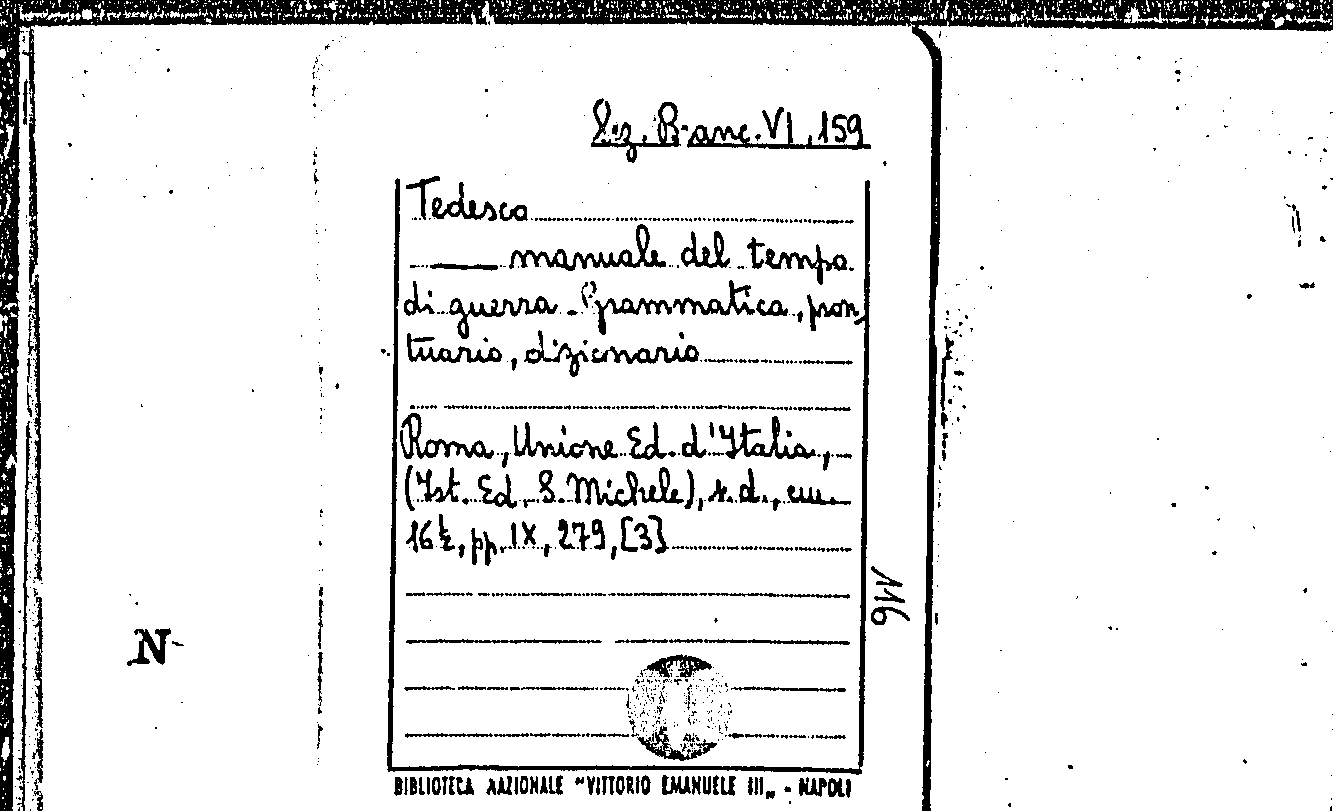 Sez. Branc. VI, 159
Tedesco
—— manuale del tempo
di guerra - Grammatica, pron,
tuario, dizionario
Roma, Unione Ed. d'Italia,
(Ist. Ed. S. Michele), s.d., cm.
16½, pp. IX, 279, [3]
116
N
BIBLIOTECA NAZIONALE "VITTORIO EMANUELE III„ - NAPOLI